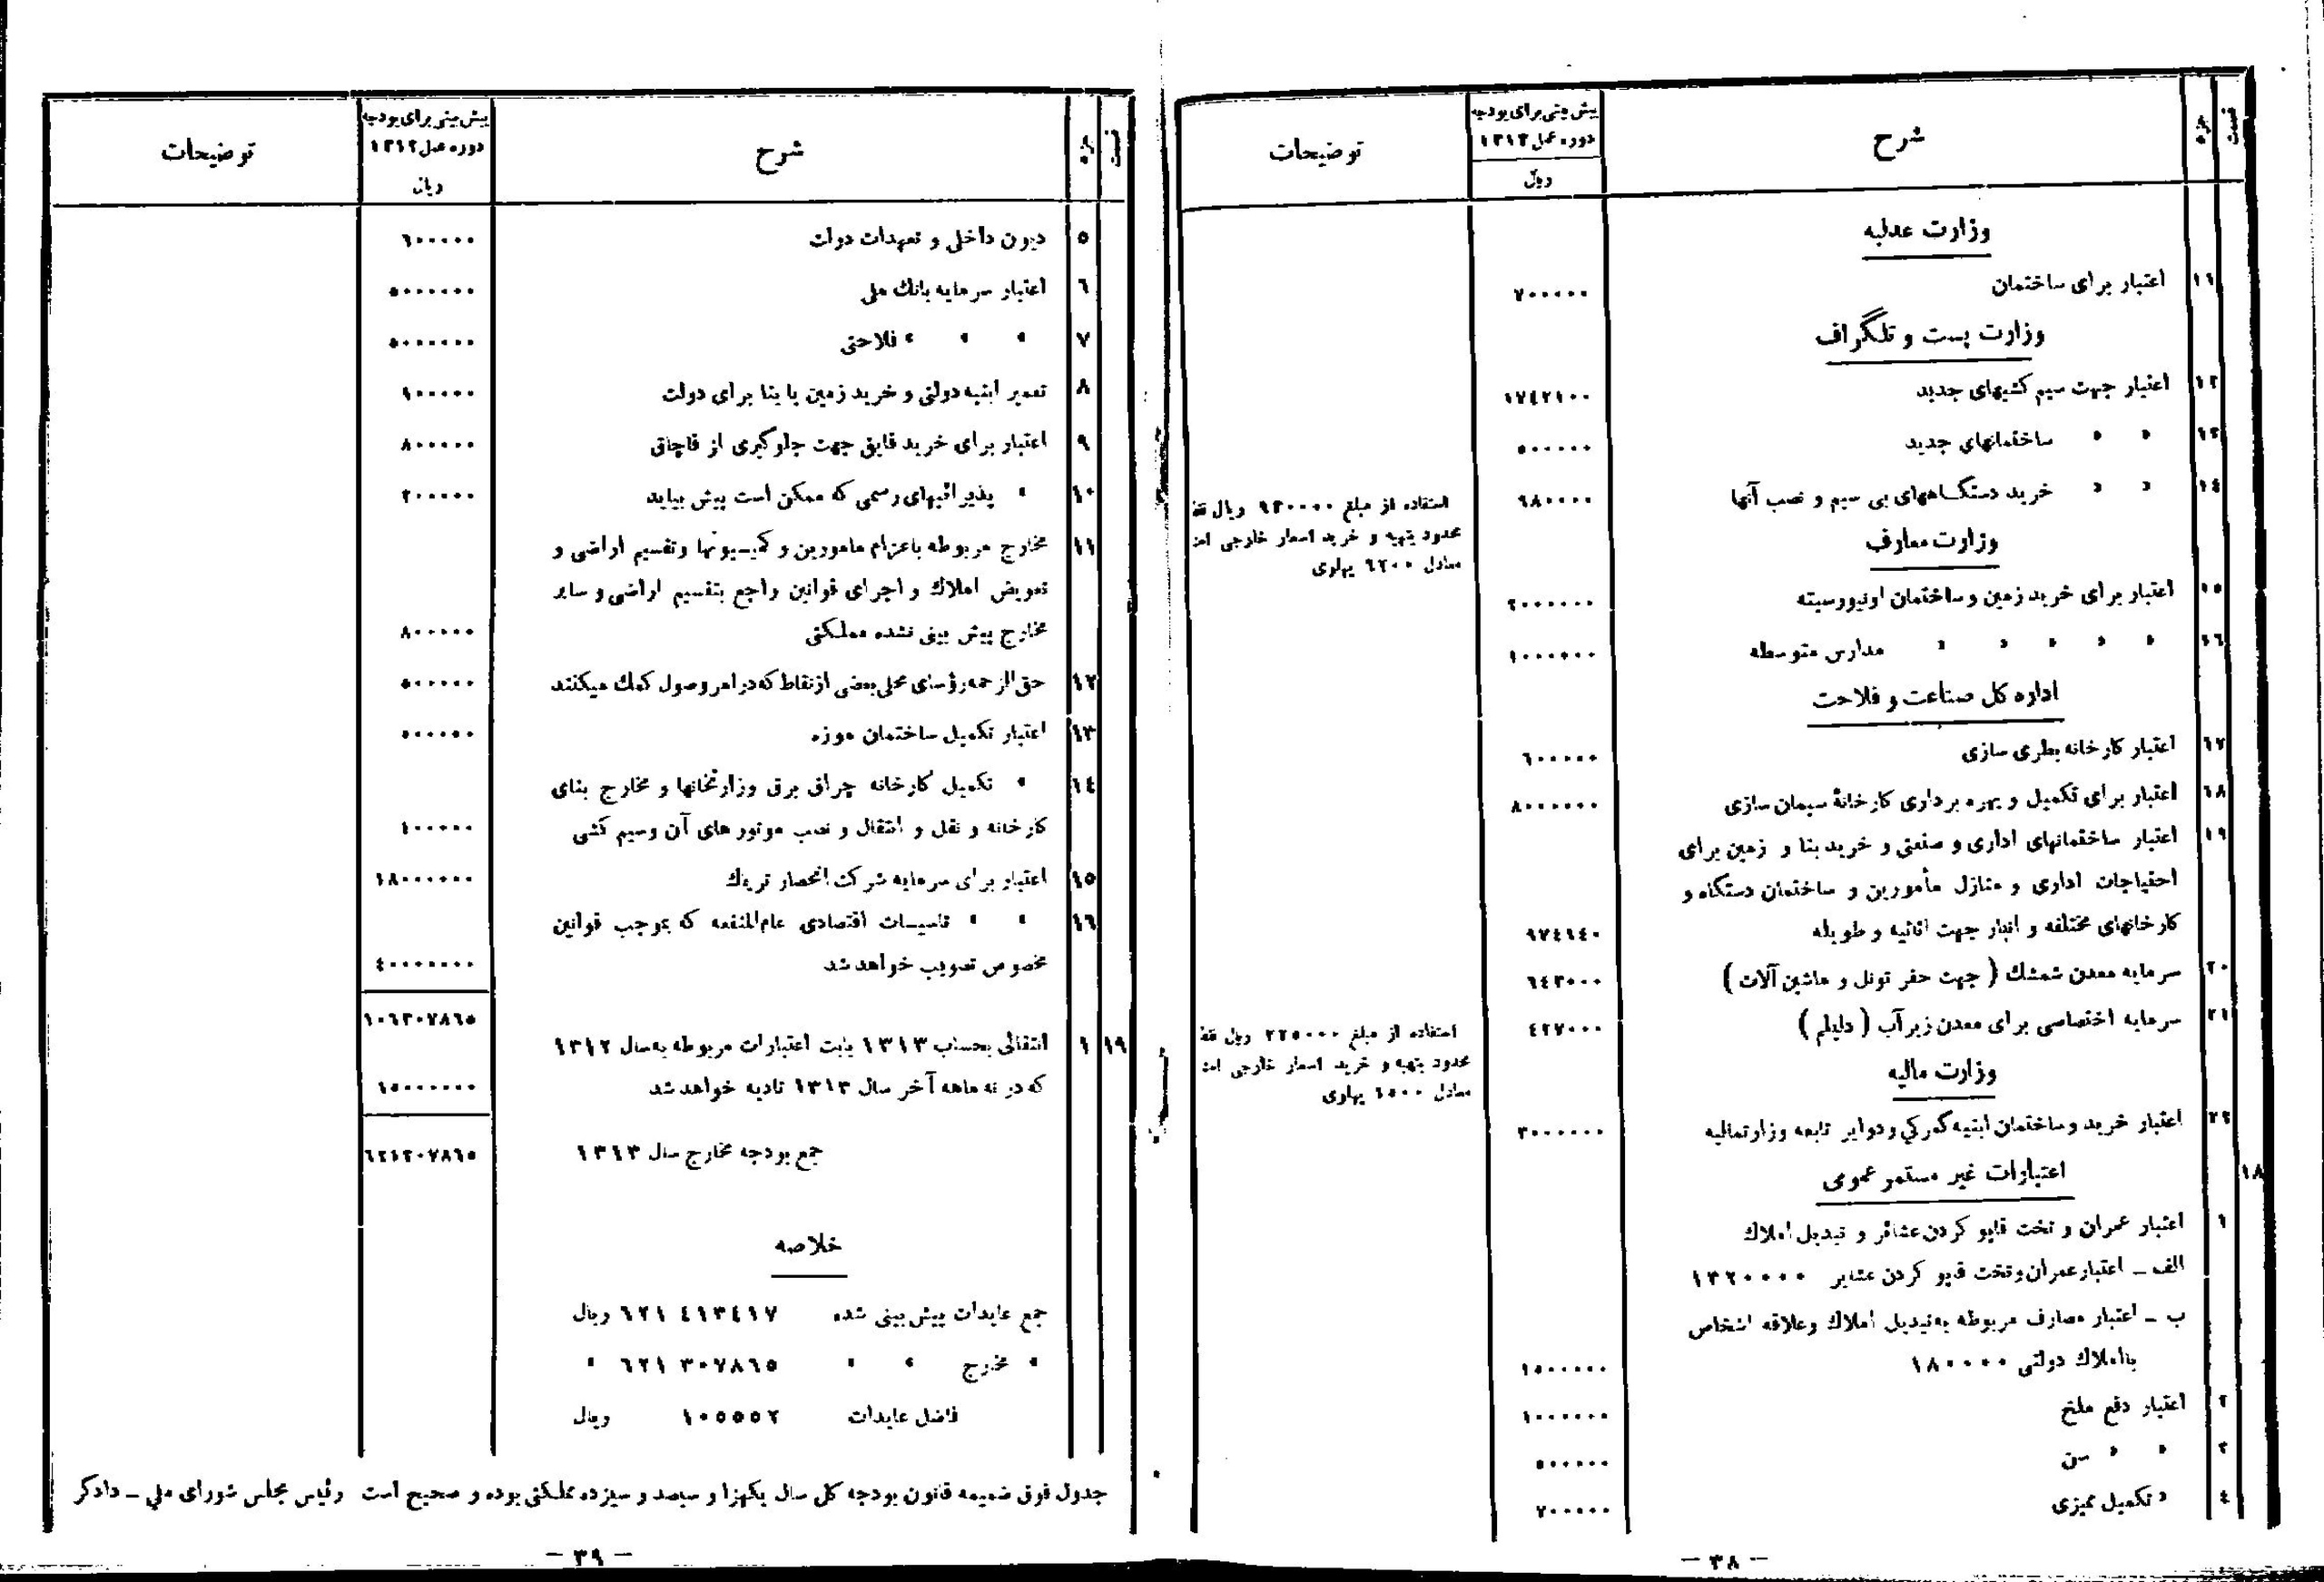 قسمت جزء شرح پیش بینی برای بودجه دوره عمل ١٣١٣ ریال توضیحات
وزارت عدلیه
١١ اعتبار برای ساختمان ٧٠٠٠٠٠
وزارت پست و تلگراف
١٢ اعتبار جهت سیم کشیهای جدید ١٧٤٢١٠٠
١٣ » » ساختمانهای جدید ٥٠٠٠٠٠
١٤ » » خرید دستگاههای بی سیم و نصب آنها ٦٨٠٠٠٠
استفاده از مبلغ ریال فقط
محدود بتهیه و خرید اسعار خارجی است
معادل ٦٢٠٠ پهلوی
وزارت معارف
١٥ اعتبار برای خرید زمین و ساختمان اونیورسیته ٢٠٠٠٠٠٠
١٦ » » » » » مدارس متوسطه ١٠٠٠٠٠٠
اداره کل صناعت و فلاحت
١٧ اعتبار کارخانه بطری سازی ٦٠٠٠٠٠
١٨ اعتبار برای تکمیل و بهره برداری کارخانهٔ سیمان سازی ٨٠٠٠٠٠٠
١٩ اعتبار ساختمانهای اداری و صنعتی و خرید بنا و زمین برای
احتیاجات اداری و منازل مأمورین و ساختمان دستگاه و
کارخانهای مختلفه و انبار جهت اثاثیه و طویله ٩٧٤٦٤٠
٢٠ سرمایه معدن شمشك ( جهت حفر تونل و ماشین آلات ) ٦٤٣٠٠٠
٢١ سرمایه اختصاصی برای معدن زیرآب ( دلیلم ) ٤٢٧٠٠٠
استفاده از مبلغ ٢٢٥٠٠٠ ریال فقط
محدود بتهیه و خرید اسعار خارجی است
معادل ١٥٠٠ پهلوی
وزارت مالیه
٢٢ اعتبار خرید و ساختمان ابنیه گمرکی و دوایر تابعه وزارتمالیه ٣٠٠٠٠٠٠
١٨ اعتبارات غیر مستمر عمومی
١ اعتبار عمران و تخت قاپو کردن عشائر و تبدیل املاك
الف ـ اعتبار عمران و تخت قاپو کردن عشایر ١٣٢٠٠٠٠
ب ـ اعتبار مصارف مربوطه به تبدیل املاك و علاقه اشخاص
باملاك دولتی ١٨٠٠٠٠ ١٥٠٠٠٠٠
٢ اعتبار دفع ملخ ١٠٠٠٠٠٠
٣ » » سن ٥٠٠٠٠٠
٤ » تکمیل ممیزی ٧٠٠٠٠٠
ـ ٣٨ ـ
قسمت جزء شرح پیش بینی برای بودجه دوره عمل ١٣١٣ ریال توضیحات
٥ دیون داخلی و تعهدات دولت ٦٠٠٠٠٠
٦ اعتبار سرمایه بانك ملی ٥٠٠٠٠٠٠
٧ » » » فلاحتی ٥٠٠٠٠٠٠
٨ تعمیر ابنیه دولتی و خرید زمین یا بنا برای دولت ٩٠٠٠٠٠
٩ اعتبار برای خرید قایق جهت جلوگیری از قاچاق ٨٠٠٠٠٠
١٠ » پذیرائیهای رسمی که ممکن است پیش بیاید ٢٠٠٠٠٠
١١ مخارج مربوطه باعزام مامورین و کمیسیونها و تقسیم اراضی و
تعویض املاك و اجرای قوانین راجع بتقسیم اراضی و سایر
مخارج پیش بینی نشده مملکتی ٨٠٠٠٠٠
١٢ حق الزحمه رؤسای محلی بعضی از نقاط که در امر وصول کمك میکنند ٥٠٠٠٠٠
١٣ اعتبار تکمیل ساختمان موزه ٥٠٠٠٠٠
١٤ » تکمیل کارخانه چراق برق وزارتخانها و مخارج بنای
کارخانه و نقل و انتقال و نصب موتور های آن و سیم کشی ١٠٠٠٠٠
١٥ اعتبار برای سرمایه شرکت انحصار تریاك ١٨٠٠٠٠٠٠
١٦ » » تاسیسات اقتصادی عام المنفعه که بموجب قوانین
مخصوص تصویب خواهد شد ٤٠٠٠٠٠٠٠
١٠٦٣٠٧٨٦٥
١٩ ١ انتقالی بحساب ١٣١٣ بابت اعتبارات مربوطه به سال ١٣١٢
که در نه ماهه آخر سال ١٣١٣ تادیه خواهد شد ١٥٠٠٠٠٠٠
جمع بودجه مخارج سال ١٣١٣ ٦٢١٣٠٧٨٦٥
خلاصه
جمع عایدات پیش بینی شده ٦٢١ ٤١٣٤١٧ ریال
» مخارج » » ٦٢١ ٣٠٧٨٦٥ »
فاضل عایدات ١٠٥٥٥٢ ریال
جدول فوق ضمیمه قانون بودجه کل سال یکهزار و سیصد و سیزده مملکتی بوده و صحیح است رئیس مجلس شورای ملی ـ دادگر
ـ ٣٩ ـ